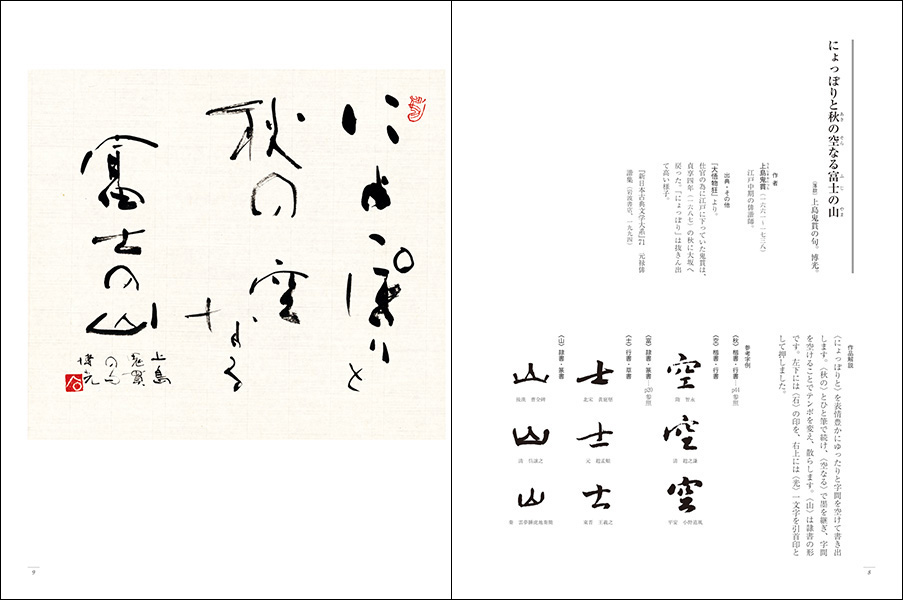 にょっぽりと秋の空なる富士の山
あき
そら
ふじ
やま
（落款）上島鬼貫の句。博光。
作者
上島鬼貫（一六六一～一七三八）
江戸中期の俳諧師。
出典・その他
『大悟物狂』より。
仕官の為に江戸に下っていた鬼貫は、
貞享四年（一六八七）の秋に大坂へ
戻った。「にょっぽり」は抜きん出
て高い様子。
『新日本古典文学大系』71 元禄俳
諧集（岩波書店、一九九四）
作品解説
〈にょっぽりと〉を表情豊かにゆったりと字間を空けて書き出
します。〈秋の〉とひと筆で続け、〈空なる〉で墨を継ぎ、字間
を空けることでテンポを変え、散らします。〈山〉は隷書の形
です。左下には〈石〉の印を、右上には〈光〉一文字を引首印と
して押しました。
参考字例
〈秋〉楷書・行書―p44参照
〈空〉楷書・行書
空
隋 智永
空
清 趙之謙
空
平安 小野道風
〈富〉隷書・篆書―p20参照
〈士〉行書・草書
士
北宋 黄庭堅
士
元 趙孟頫
士
東晋 王羲之
〈山〉隷書・篆書
山
後漢 曹全碑
山
清
山
秦
8
にょっぽりと
秋の空なる
富士の山
上島
鬼貫
の句
博光
9